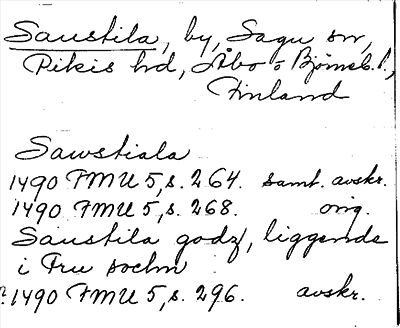 Saustila, by, Sagu sn,
Pikis hd, Åbo o Björneb. l.,
Finland
Sawstiala
1490 FMU 5, s. 264. samt. avskr.
1490 FMU 5, s. 268. orig.
Saustila godz, liggende
i Tru sochn
1490 FMU 5, s. 296. avskr.